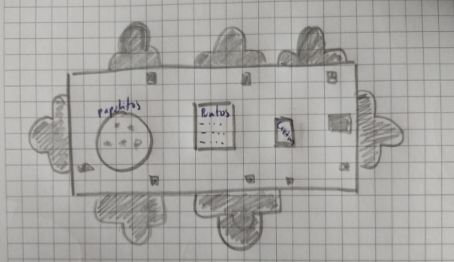 papelitos
Puntos